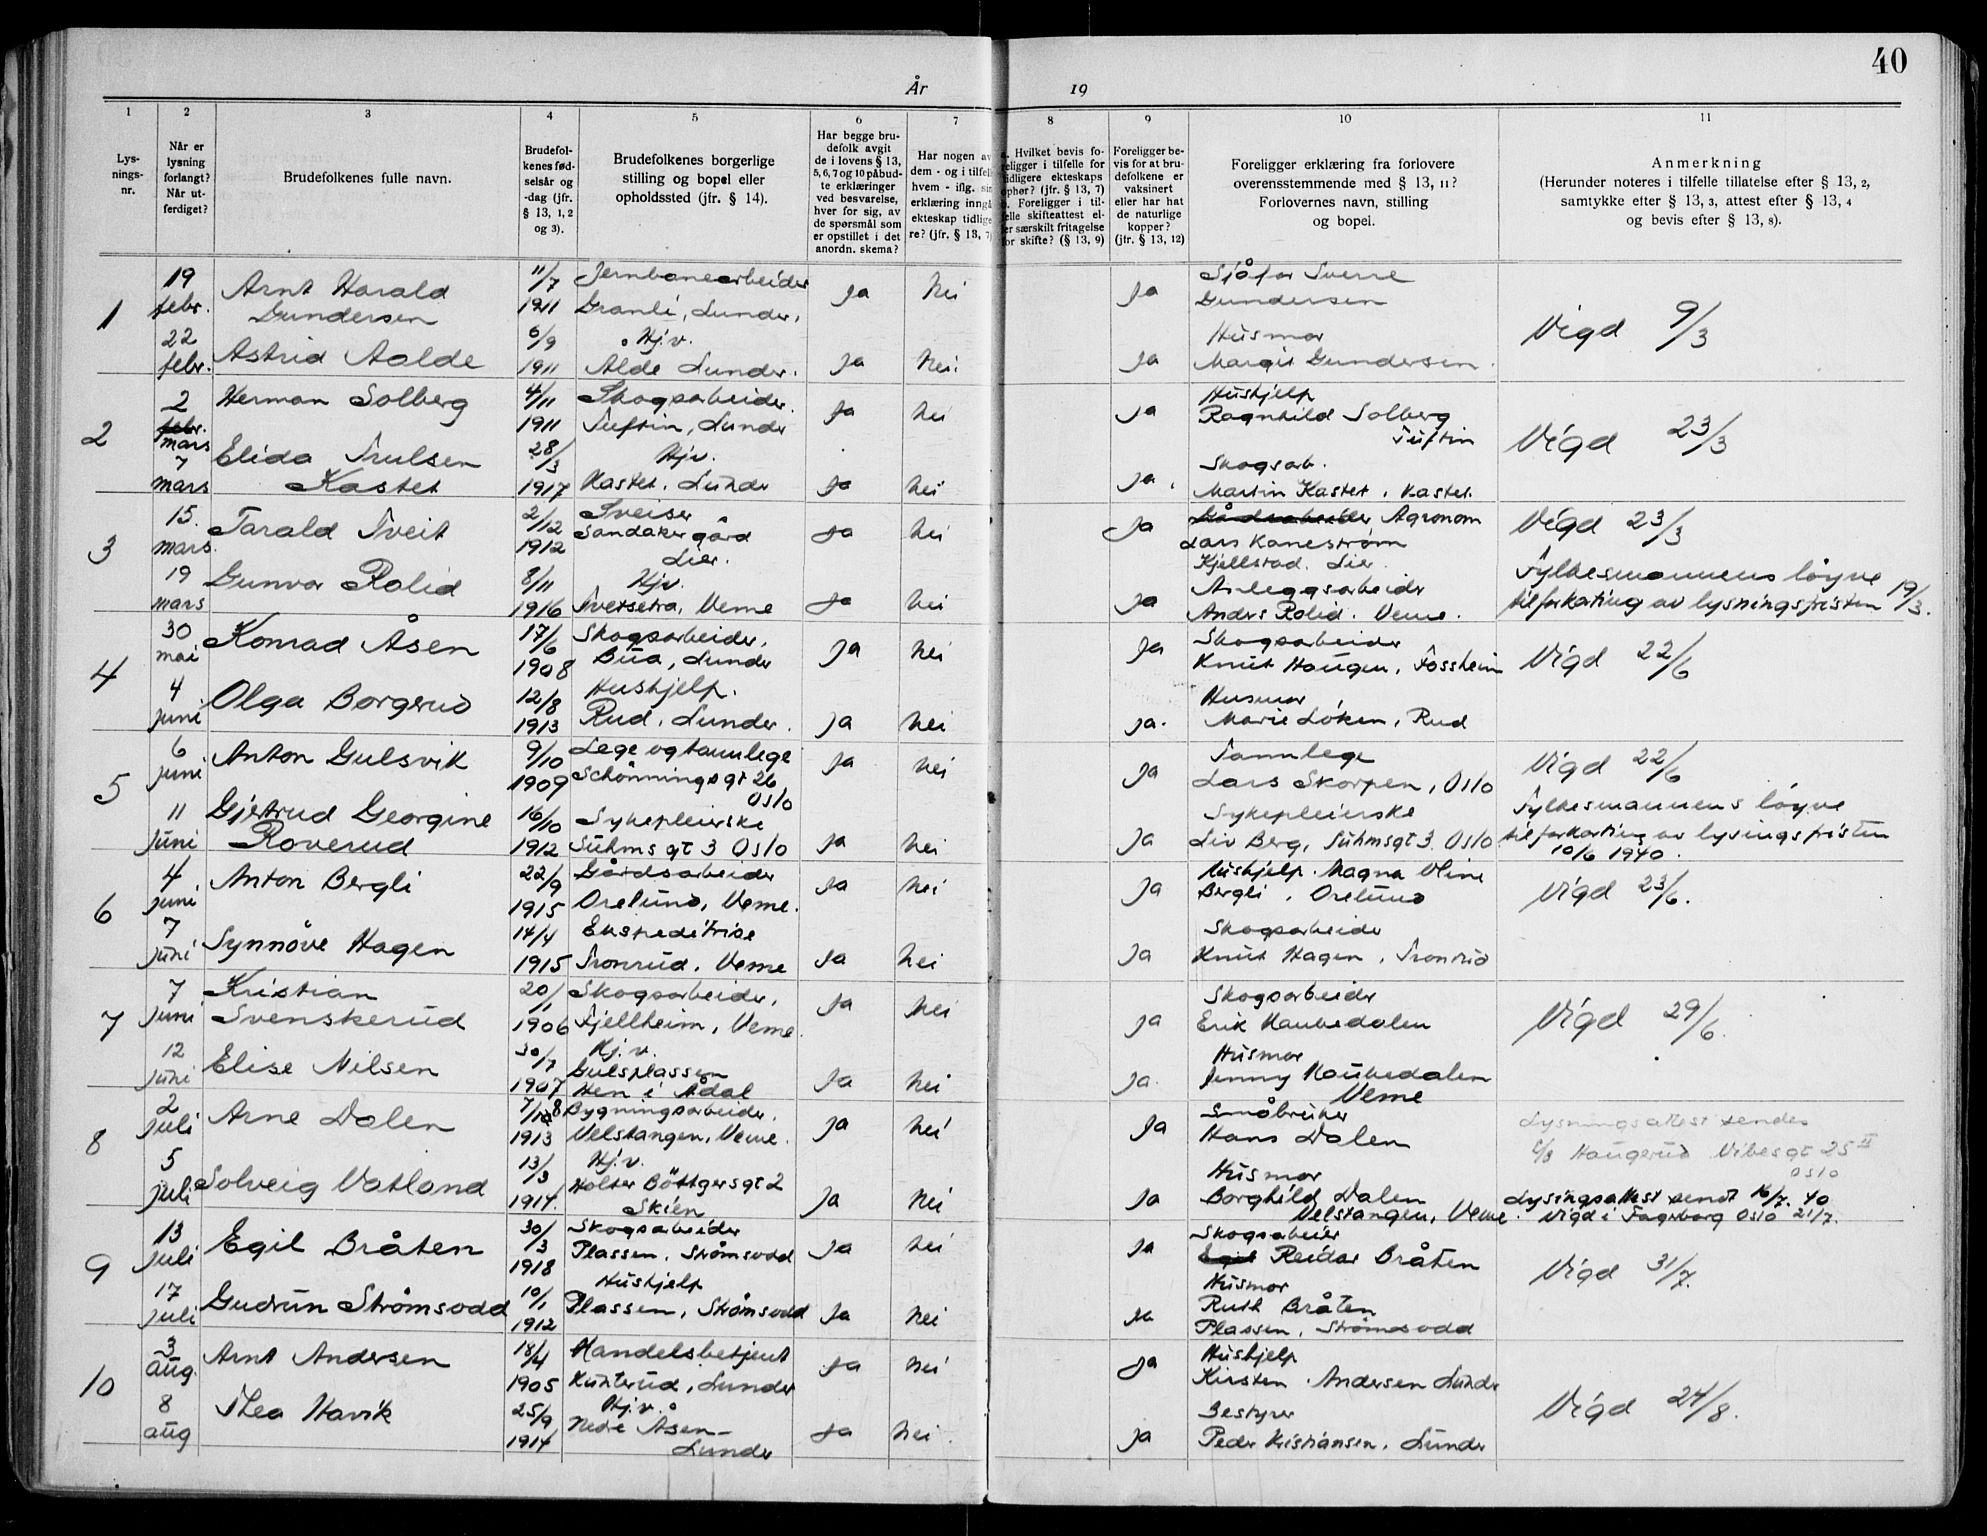 40
År 19
1 2 3 4 5 6 7 8 9 10 11
Lys-
nings-
nr.
Når er
lysning
forlangt?
Når ut-
ferdiget?
Brudefolkenes fulle navn.
Brudefol-
kenes fød-
selsår og
-dag (jfr.
§ 13, 1, 2
og 3).
Brudefolkenes borgerlige
stilling og bopel eller
opholdssted (jfr. § 14).
Har begge bru-
defolk avgit
de i lovens § 13,
5, 6, 7 og 10 påbud-
te erklæringer
ved besvarelse,
hver for sig, av
de spørsmål som
er opstillet i det
anordn. skema?
Har nogen av
dem - og i tilfell
hvem - iflg. sin
erklæring inngå
ekteskap tidlige
re? (jfr. § 13, 7)
a. Hvilket bevis fo-
religger i tilfelle for
tidligere ekteskaps
ophør? (jfr. § 13, 7)
b. Foreligger i til-
felle skifteattest el-
er særskilt fritagelse
for skifte? (§ 13, 9)
Foreligger be-
vis for at bru-
defolkene er
vaksinert
eller har hat
de naturlige
kopper?
(jfr. § 13, 12)
Foreligger erklæring fra forlovere
overensstemmende med § 13, 11?
Forlovernes navn, stilling
og bopel.
Anmerkning
(Herunder noteres i tilfelle tillatelse efter § 13, 2,
samtykke efter § 13, 3, attest efter § 13, 4
og bevis efter § 13, 8).
1
19
febr.
Arnt Harald
Gundersen
11/7
1911
Jernbanearbeider
Granli, Lunder,
Ja nei Ja
Sjåfør Sverre
Gundersen
Vigd 9/3
22
febr.
Astrid Aalde
6/9
1911
Hj.v.
Alde Lunder.
Ja nei. Ja
Husmor
Margit Gundersen.
2
2
febr.
mars
Herman Solberg
4/11
1911
Skogsarbeider.
Tuftin, Lunder
Ja nei Ja
Hushjelp
Ragnhild Solberg
Tuftin
Vigd 23/3
7
mars
Elida Trulsen
Kastet
28/3
1917
Hj.v.
Kastet. Lunder
Ja nei Ja.
Skogsarb.
Martin Kastet, Kastet.
3
15.
mars.
Tarald Tveit
2/12
1912
Sveiser
Sandaker gård
Lier.
Ja nei Ja
Agronom
Lars Kanestrøm
Kjellstad. Lier.
Vigd 23/3
19
mars
Gunvor Rolid
8/11
1916
Hj.v.
Tversetra, Veme
Ja nei Ja
Anleggsarbeider
Anders Rolid. Veme.
Fylkesmannens løyve
til forkorting av lysningsfristen 19/3.
4
30
mai
Konrad Åsen
17/6
1908
Skogsarbeider,
Bua, Lunder
Ja nei Ja
Skogsarbeider
Knut Haugen, Fossheim
Vigd 22/6
4
juni
Olga Borgerud
12/8
1913
Hushjelp.
Rud, Lunder.
Ja nei Ja.
Husmor
Marie Løken, Rud
5
6
juni
Anton Gulsvik
9/10
1909
Lege og tannlege
Schønningsgt 26
Oslo
Ja nei Ja
Tannlege
Lars Skorpen, Oslo
Vigd 22/6
11
juni
Gjertrud Georgine
Roverud
16/10
1912
Sykepleierske
Suhms gt 3 Oslo
Ja nei Ja
Sykepleierske
Liv Berg, Suhmsgt 3 Oslo
Fylkesmannens løyve
til forkorting av lysingsfristen
10/6 1940.
6
4
juni
Anton Bergli
22/9
1915
Gårdsarbeider
Orelund, Veme.
Ja nei Ja
Hushjelp. Magna Oline
Bergli, Orelund
Vigd 23/6.
7
juni
Synnöve Hagen
14/4
1915
Ekspeditrise
Tronrud. Veme
Ja nei Ja
Skogsarbeider
Knut Hagen, Tronrud
7
7
juni
Kristian
Svenskerud
20/1
1906
Skogsarbeider,
Fjellheim, Veme.
Ja nei Ja
Skogsarbeider
Erik Haubedalen
Vigd 29/6.
12
juni
Elise Nilsen
30/7
1907
Hj.v.
Gulsplassen
Hen i Ådal
Ja nei Ja.
Husmor
Jenny Haubedalen
Veme
8
2
juli
Arne Dalen
1913
Bygningsarbeider,
Velstangen, Veme.
Ja nei Ja
Småbruker
Hans Dalen
Lysningsattest sendes
Haugerud Vibesgt 25 II
Oslo
5
juli
Solveig Vatland
13/3
1914.
Hj.v.
Holter Böttgersgt 2
Skien
Ja nei Ja
Husmor
Borghild Dalen
Velstangen, Veme.
Lysingsattest sendt 16/7. 40
Vigd i Fagerborg Oslo 21/7.
9
13
juli
Egil Bråten
30/3
1918
Skogsarbeider
Plassen, Strømsodd
Ja nei Ja
Skogsarbeier
Egil Reidar Bråten
Vigd 31/7.
17
juli
Gudrun Strømsodd
10/1
1912
Hushjelp
Plassen, Strømsodd
Ja nei Ja
Husmor
Ruth Bråten
Plassen, Strømsodd
10
3
aug.
Arnt Andersen
18/4
1905
Handelsbetjent
Kunterud, Lunder
Ja nei Ja
Hushjelp
Kirsten Andersen Lunder
Vigd 24/8.
8
aug
Thea Havik
25/9
1914
Hj.v.
Nedre Åsen-
Lunder
Ja nei Ja
Bestyrer
Peder Kristiansen, Lunder